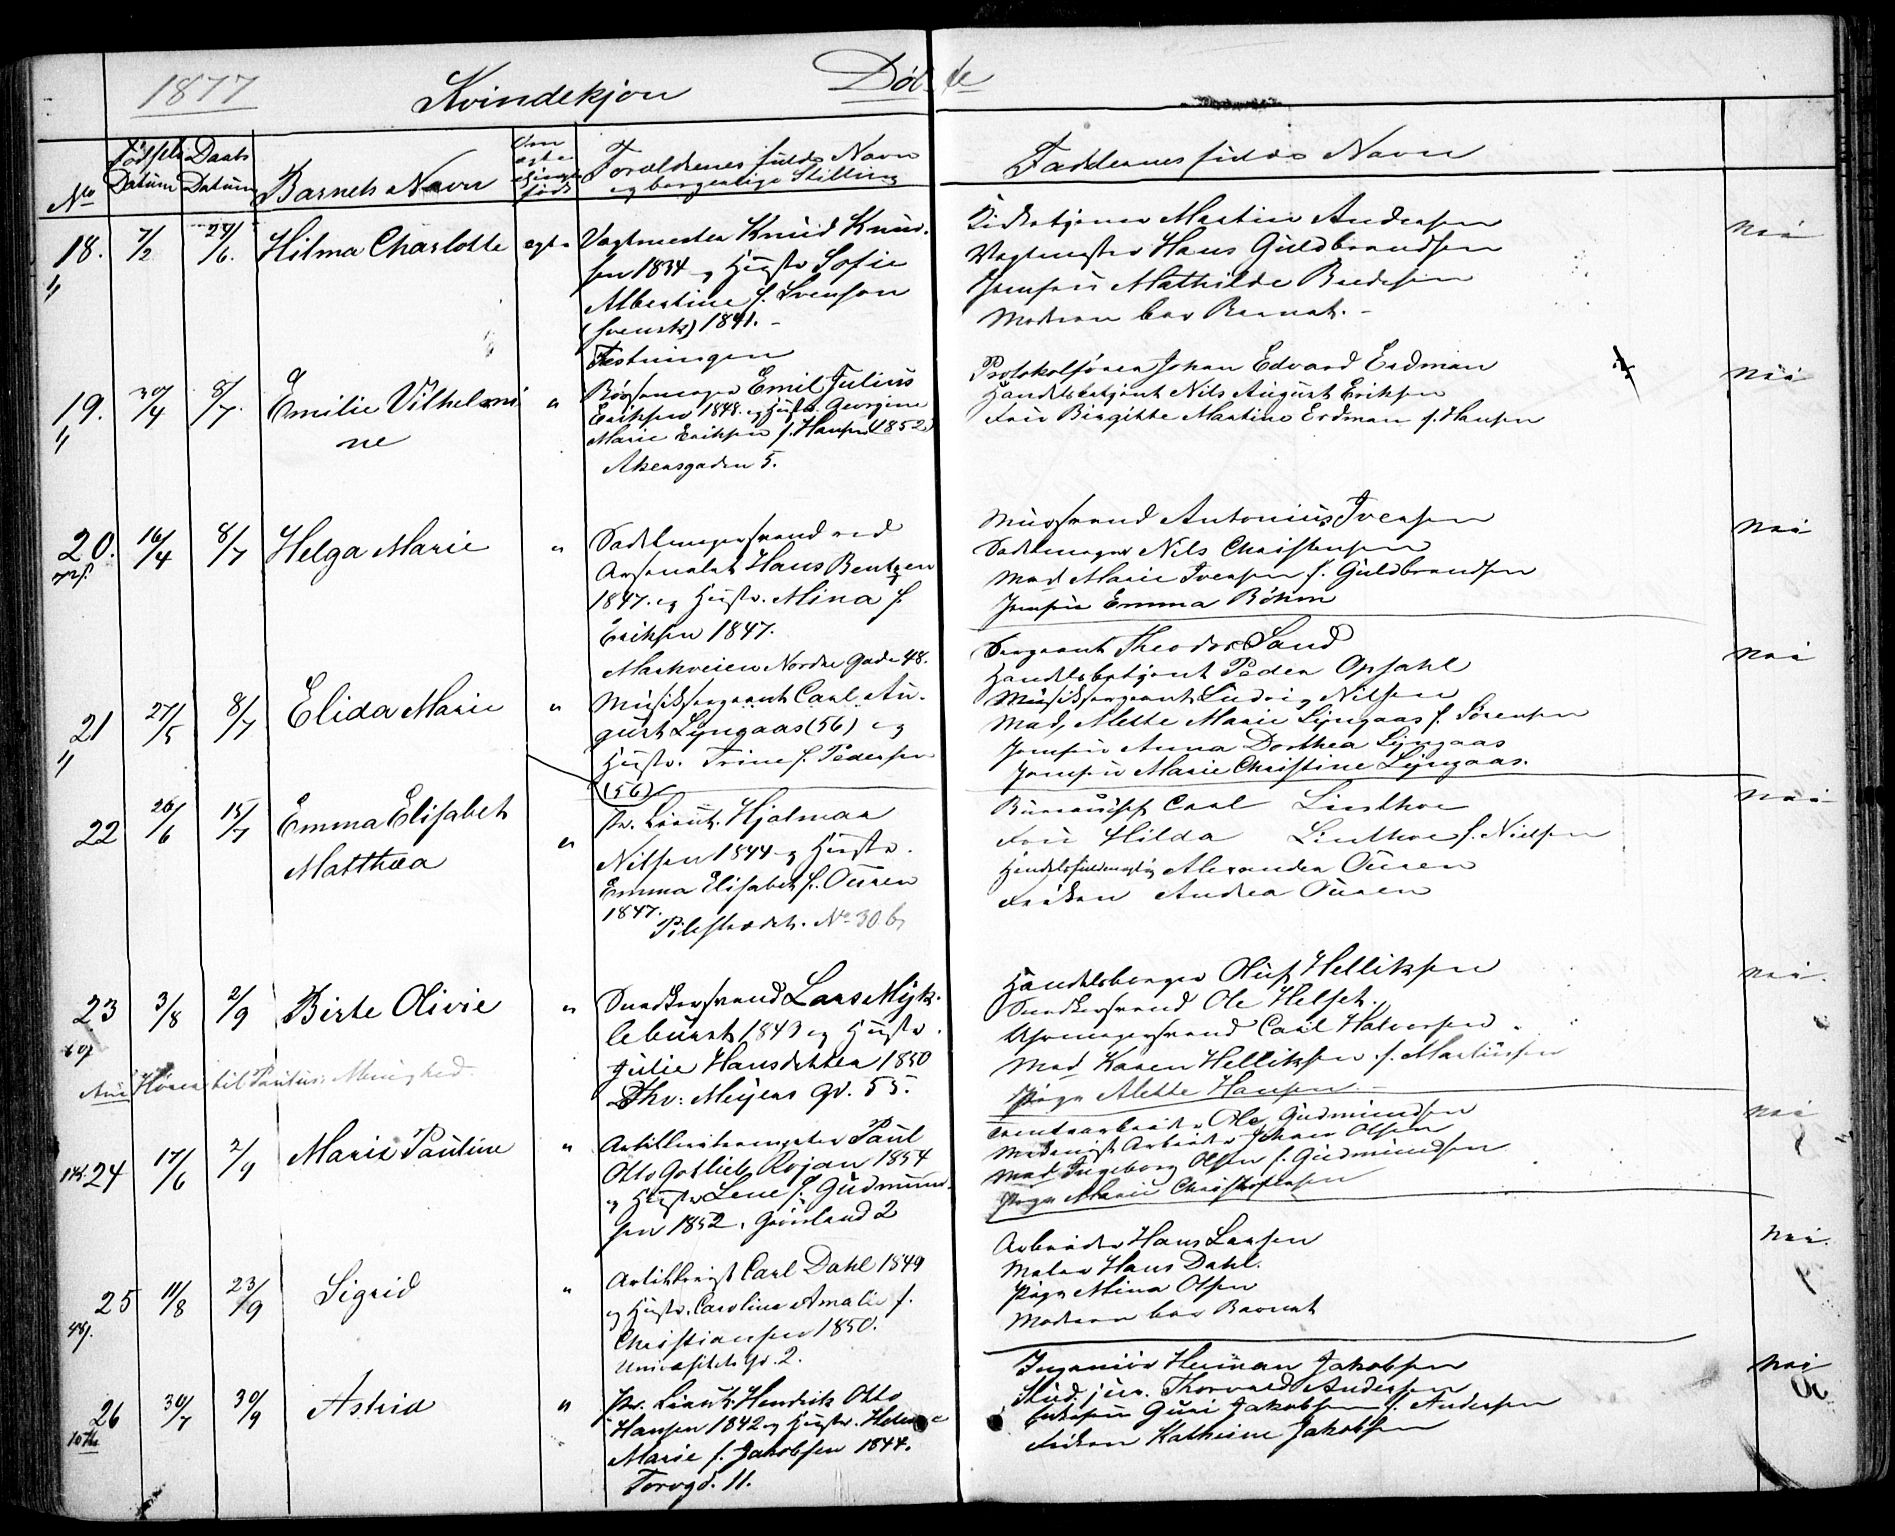 1877
Kvindekjøn
Døbte
No
Fødsels Datum
Daabs Datum
Barnets Navn
Om ægte eller uægte født
Forældrenes fulde Navn
og borgerlige Stilling
Faddernes fulde Navn
18. 7/2 24/6. Hilma Charlotte ægte
Vagtmester Knud Knud-
sen 1834 og Hustr Sofie
Albertine f. Svenson
(svensk) 1841. -
Fæstningen
Kirketjener Martin Andersen
Vagtmester Hans Guldbrandsen
Jomfru Mathilde
Moderen bar Barnet. -
Nei
19. 30/4 8/7. Emilie Vilhelmi
ne
"
Børsemager Emil Julius
Eriksen 1848. og Hustr. Georgine
Marie Eriksen f. Hansen (1852)
Akersgaden 5.
Protokolfører Johan Edvard Erdman
Handelsbetjent Nils August Eriksen
Fru Birgitte Martine Erdman f. Hansen
Nei
20. 16/4 8/7 Helga Marie "
Sadelmagersvend ved
Arsenalet Hans Bentzen
1847. og Hustr. Mina f.
Eriksen 1847.
Markveien Nordre Gade 48.
Mursvend Antonius Iversen
Sadelmager Nils Christensen
Mad Marie Iversen f. Guldbrandsen
Jomfru Emma Böhm
Nei
21 27/5 8/7 Elida Marie "
Musiksergeant Carl Au-
gust Lyngaas (56) og
Hustr. Trine f. Pedersen
(56)
Sergeant Theodor Sand
Handelsbetjent Peder Opsahl
Musiksergeant Ludvig Nilsen
Mad, Mette Marie Lyngaas f. Sørensen
Jomfru Anna Dorthea Lyngaas
Jomfru Marie Christine Lyngaas.
Nei
22 26/6 15/7 Emma Elisabet
Matthea
"
Pr. Lieut. Hjalmar
Nilsen 1844 og Hustr.
Emma Elisabet f. Ouren
1847.
Pilestrædet. No 30 b
Bureauchef Carl Linthoe
Fru Hilda Linthoe f. Nielsen
Handelsfuldmægtig Alexander Ouren
Frøken Andrea Ouren
Nei
23 3/8 2/9 Birte Olivie "
Snedkersvend Lars Myk-
lebust 1849 og Hustr.
Julie Hansdatter 1850
Thv: Meyers gd. 55.
Handelsborger Oluf Helliksen
Snedkersvend Ole Helset.
Uhrmagersvend Carl Halvorsen
Mad Karen Helliksen f. Martinsen
Pige Mette Hansen
Nei
til Paulus Menighed
24 17/6 2/9 Marie Pauline "
Paul
Otto Gotlieb Rojan 1854
og Hustr Lene f. Gudmund-
sen 1852. Grønland 2
Ole Gudmundsen
Arbeider Johan Olsen
Mad Ingeborg Olsen f. Gudmundsen
Pige Marie Christofersen
Nei
25 11/8 23/9 Sigrid "
Artillerist Carl Dahl 1849
og Hustr. Caroline Amalie f.
Christiansen 1850.
Universitets Gd. 2.
Arbeider Hans Larsen
Maler Hans Dahl.
Pige Mina Olsen
Moderen bar Barnet
Nei.
26 30/7 30/9 Astrid "
Pr. Lieut. Hendrik Otto
Hansen 1842 og Hustr. Helene
Marie f. Jakobsen 1844.
Torvgd. 11.
Ingeniør Herman Jakobsen
Stud. jur. Thorvald Andersen
Guri Jakobsen f. Andersen
Frøken Kathrine Jakobsen
Nei